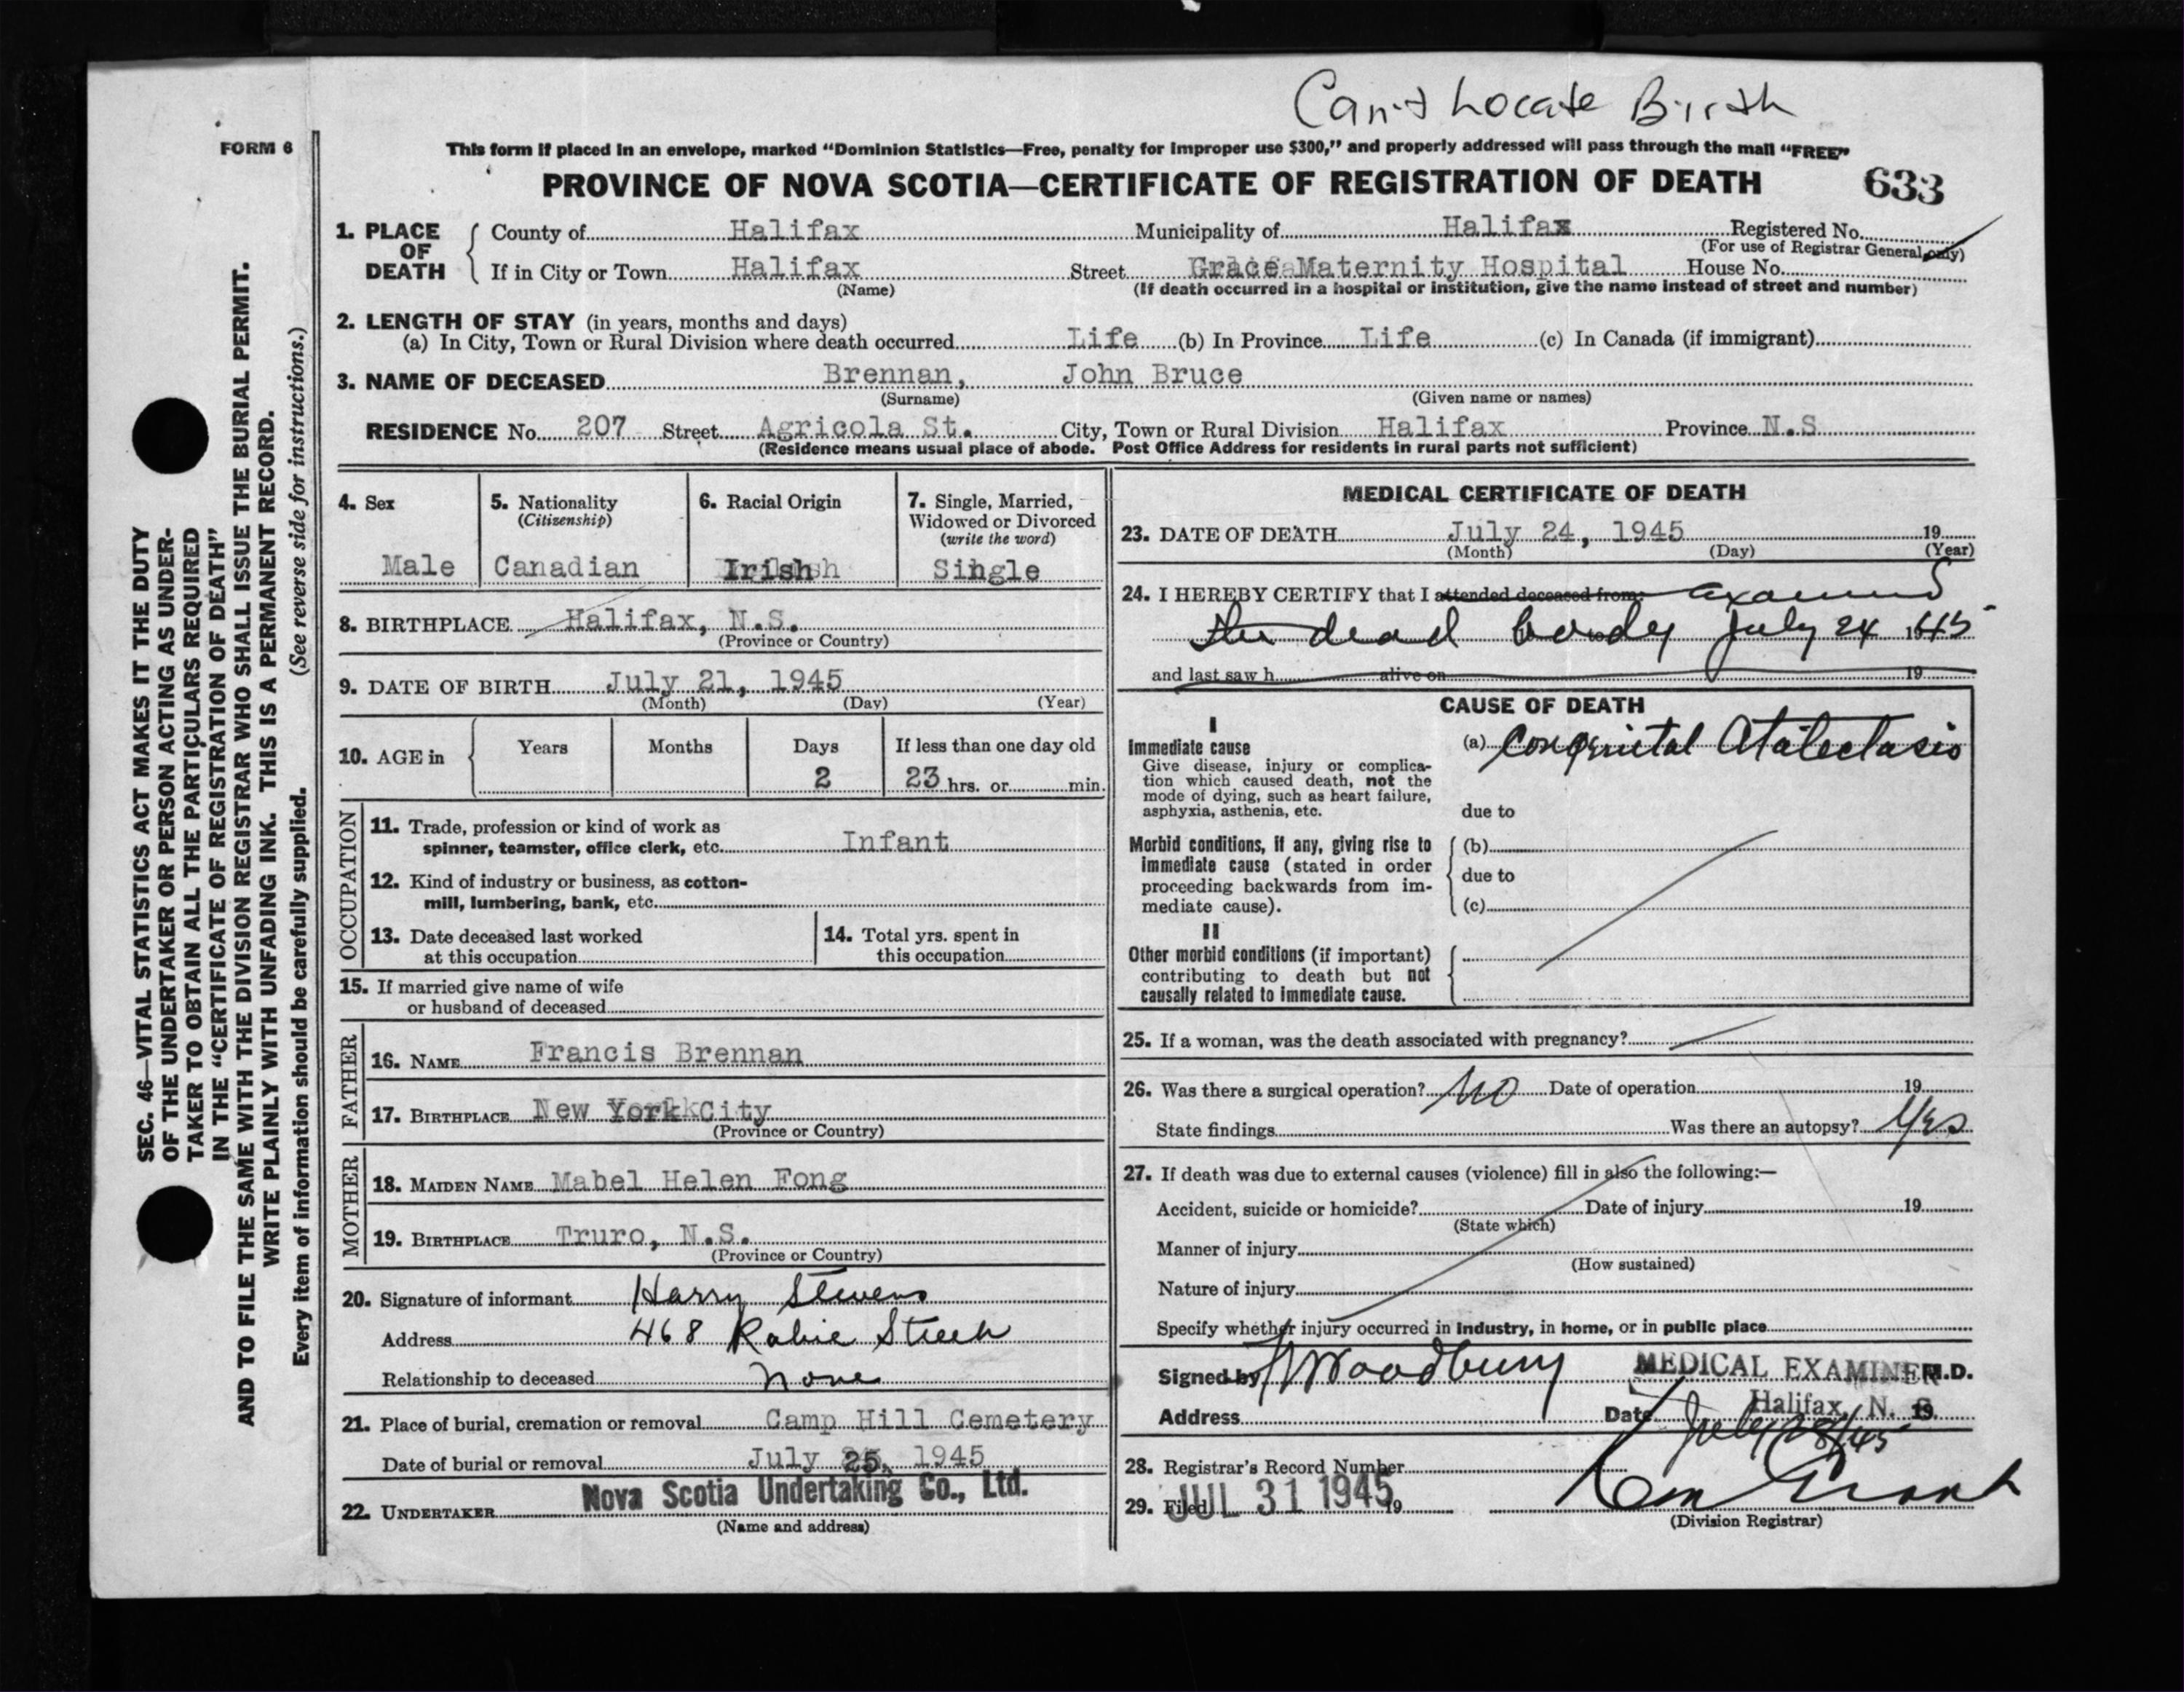 Can't Locate Birth
FORM 6
This form if placed in an envelope, marked “Dominion Statistics—Free, penalty for improper use $300,” and properly addressed will pass through the mail “FREE”
PROVINCE OF NOVA SCOTIA—CERTIFICATE OF REGISTRATION OF DEATH 633
1. PLACE OF DEATH
County of Halifax Municipality of Halifax Registered No.
(For use of Registrar General only)
If in City or Town Halifax Street Grace Maternity Hospital House No.
(Name) (If death occurred in a hospital or institution, give the name instead of street and number)
2. LENGTH OF STAY (in years, months and days)
(a) In City, Town or Rural Division where death occurred Life (b) In Province Life (c) In Canada (if immigrant)
3. NAME OF DECEASED Brennan, John Bruce
(Surname) (Given name or names)
RESIDENCE No. 207 Street Agricola St. City, Town or Rural Division Halifax Province N.S
(Residence means usual place of abode. Post Office Address for residents in rural parts not sufficient)
4. Sex
Male
5. Nationality
(Citizenship)
Canadian
6. Racial Origin
Irish
7. Single, Married,
Widowed or Divorced
(write the word)
Single
8. BIRTHPLACE Halifax, N.S.
(Province or Country)
9. DATE OF BIRTH July 21, 1945
(Month) (Day) (Year)
10. AGE in
Years Months Days If less than one day old
2 23 hrs. or min.
OCCUPATION
11. Trade, profession or kind of work as
spinner, teamster, office clerk, etc. Infant
12. Kind of industry or business, as cotton-
mill, lumbering, bank, etc.
13. Date deceased last worked
at this occupation
14. Total yrs. spent in
this occupation
15. If married give name of wife
or husband of deceased
FATHER
16. NAME Francis Brennan
17. BIRTHPLACE New York City
(Province or Country)
MOTHER
18. MAIDEN NAME Mabel Helen Fong
19. BIRTHPLACE Truro, N.S.
(Province or Country)
20. Signature of informant Harry Stevens
Address 468 Robie Street
Relationship to deceased none
21. Place of burial, cremation or removal Camp Hill Cemetery
Date of burial or removal July 25, 1945
22. UNDERTAKER Nova Scotia Undertaking Co., Ltd.
(Name and address)
MEDICAL CERTIFICATE OF DEATH
23. DATE OF DEATH July 24, 1945 19
(Month) (Day) (Year)
24. I HEREBY CERTIFY that I attended deceased from: examined
the dead body July 24 1945
and last saw h alive on 19
CAUSE OF DEATH
I
Immediate cause
Give disease, injury or complica-
tion which caused death, not the
mode of dying, such as heart failure,
asphyxia, asthenia, etc.
(a) Congenital Atelectasis
due to
Morbid conditions, if any, giving rise to
immediate cause (stated in order
proceeding backwards from im-
mediate cause).
(b)
due to
(c)
II
Other morbid conditions (if important)
contributing to death but not
causally related to immediate cause.
25. If a woman, was the death associated with pregnancy?
26. Was there a surgical operation? No Date of operation 19
State findings Was there an autopsy? Yes
27. If death was due to external causes (violence) fill in also the following:—
Accident, suicide or homicide? Date of injury 19
(State which)
Manner of injury
(How sustained)
Nature of injury
Specify whether injury occurred in industry, in home, or in public place
Signed by Woodbury MEDICAL EXAMINER M.D.
Halifax, N. S.
Address Date July 28/45 19
28. Registrar's Record Number
29. Filed JUL 31 1945 19
(Division Registrar)
SEC. 46—VITAL STATISTICS ACT MAKES IT THE DUTY
OF THE UNDERTAKER OR PERSON ACTING AS UNDER-
TAKER TO OBTAIN ALL THE PARTICULARS REQUIRED
IN THE “CERTIFICATE OF REGISTRATION OF DEATH”
AND TO FILE THE SAME WITH THE DIVISION REGISTRAR WHO SHALL ISSUE THE BURIAL PERMIT.
WRITE PLAINLY WITH UNFADING INK. THIS IS A PERMANENT RECORD.
Every item of information should be carefully supplied. (See reverse side for instructions.)